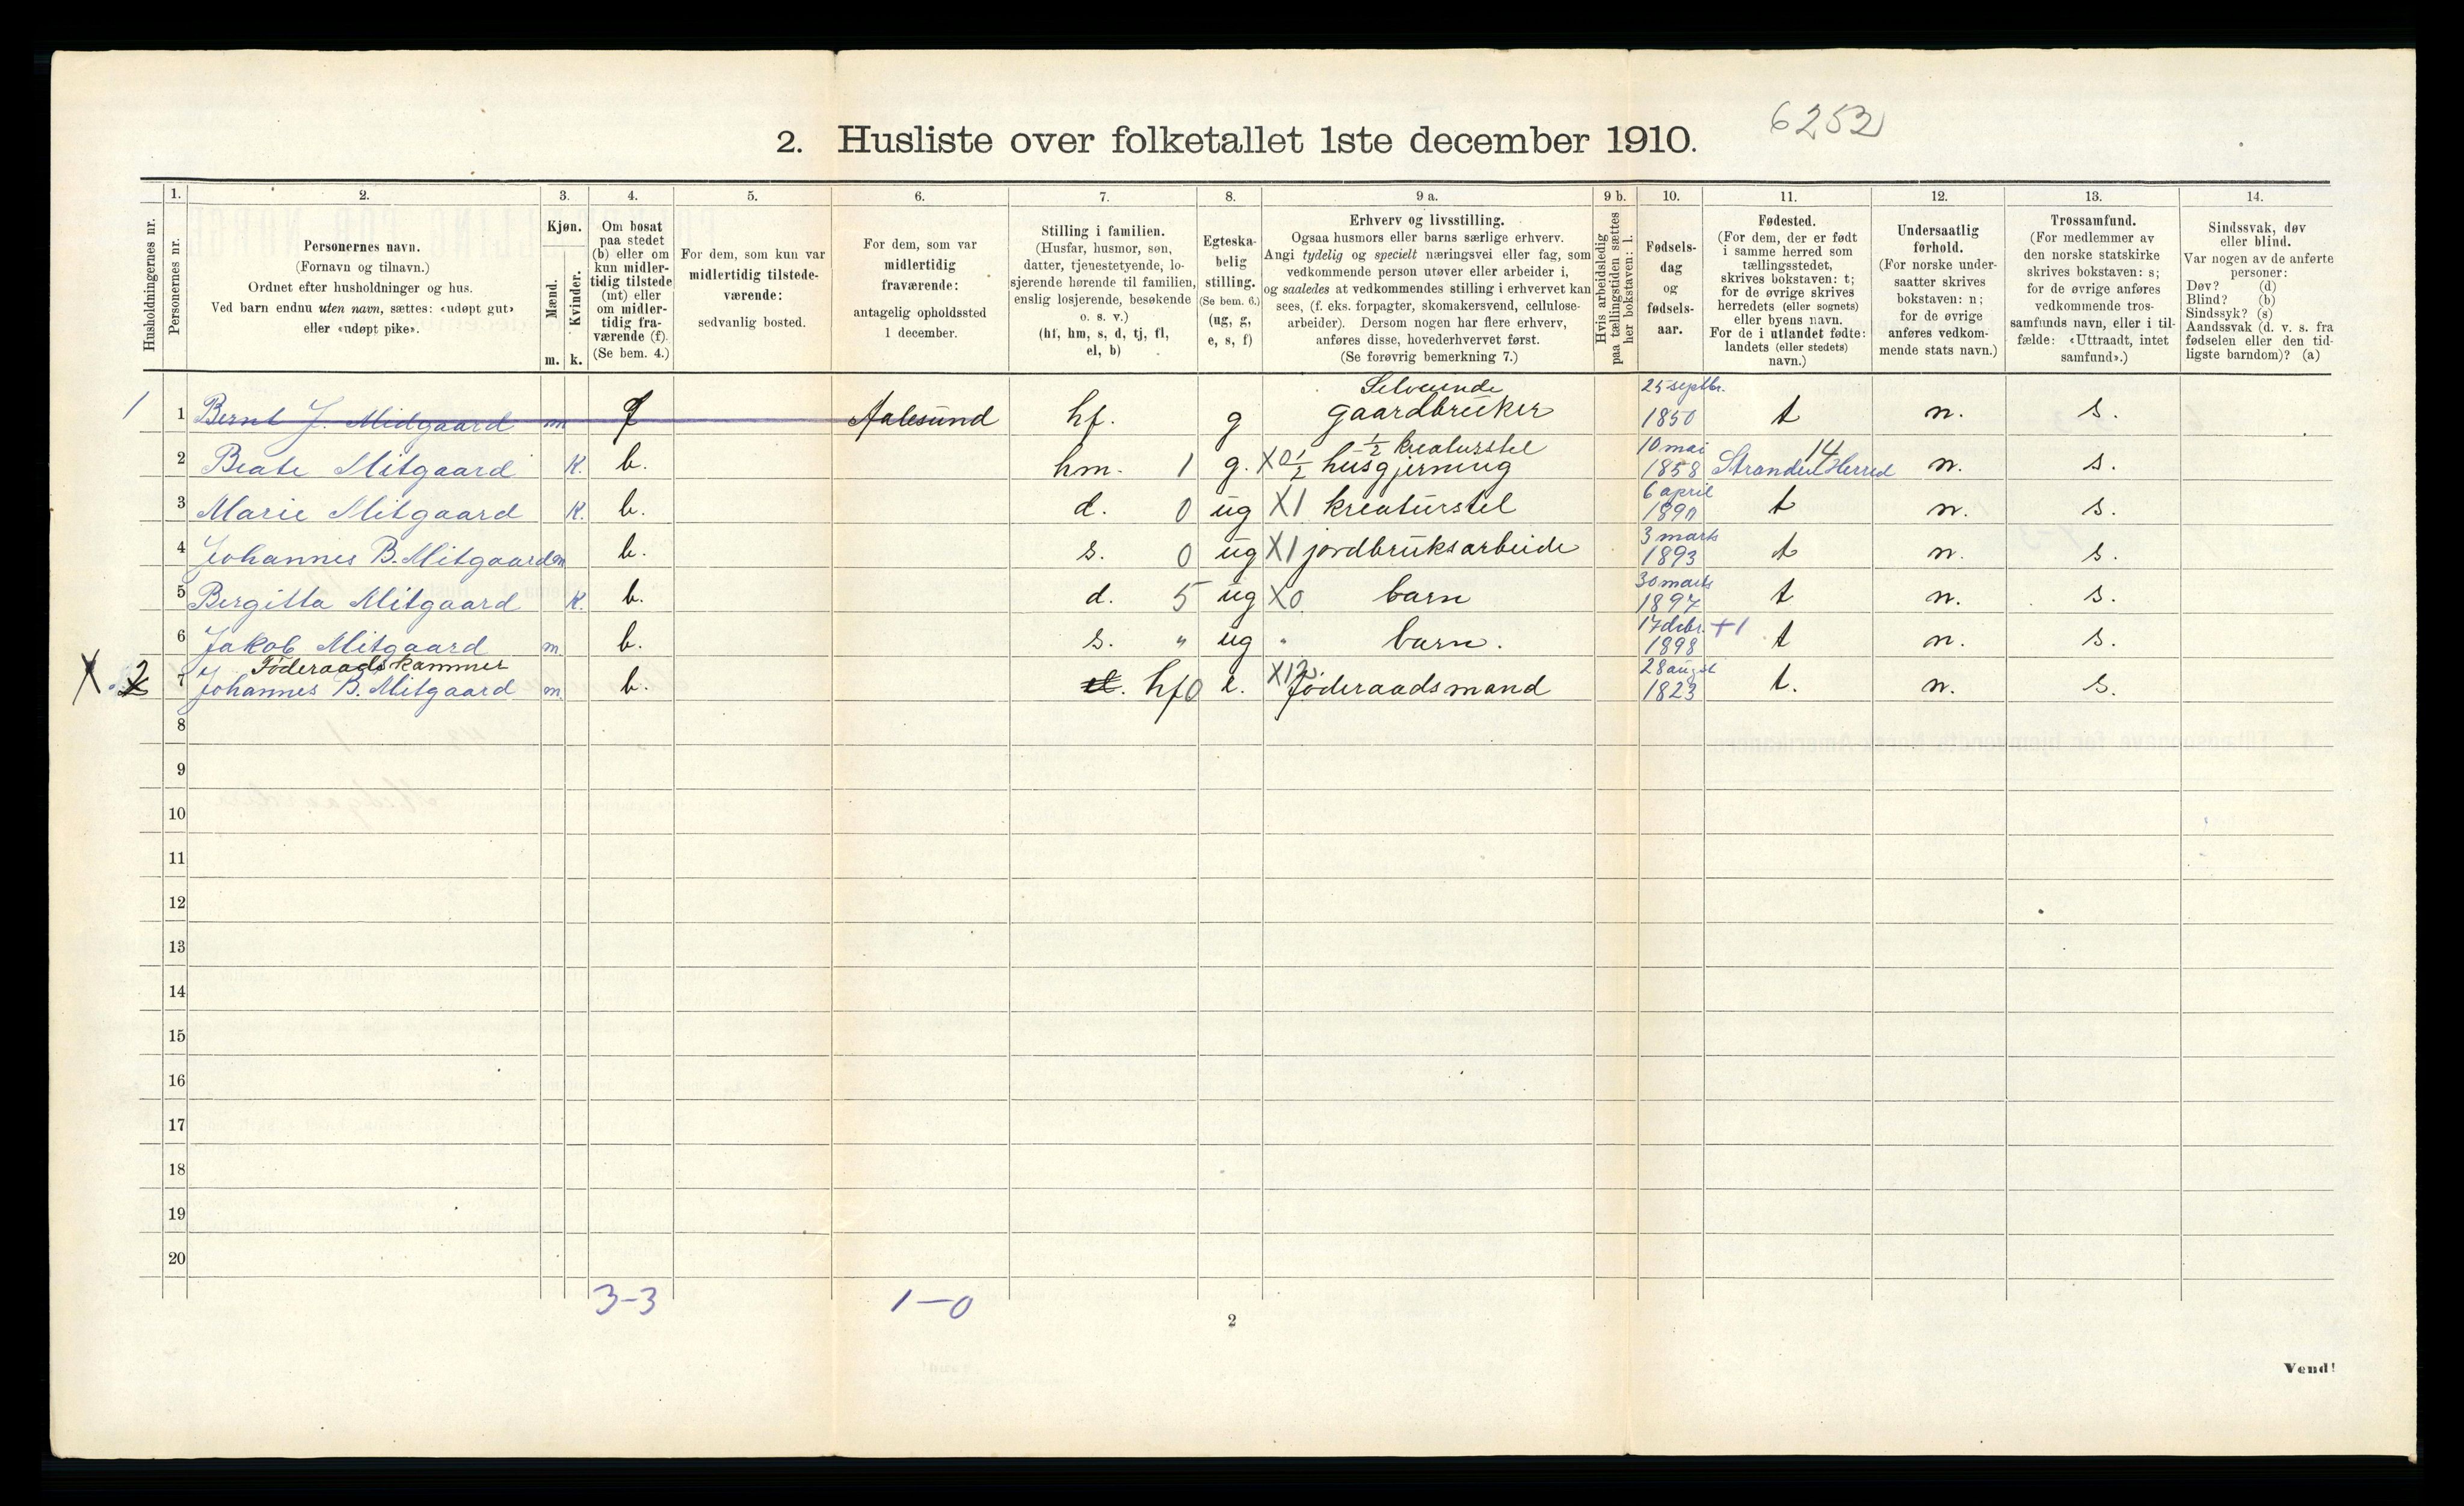 6252
2. Husliste over folketallet 1ste december 1910.
Husholdningernes nr.
1.
Personernes nr.
2.
Personernes navn.
(Fornavn og tilnavn.)
Ordnet efter husholdninger og hus.
Ved barn endnu uten navn, sættes: «udøpt gut»
eller «udøpt pike».
3.
Kjøn.
Mænd.
Kvinder.
m. k.
4.
Om bosat
paa stedet
(b) eller om
kun midler-
tidig tilstede
(mt) eller
om midler-
tidig fra-
værende (f).
(Se bem. 4.)
5.
For dem, som kun var
midlertidig tilstede-
værende:
sedvanlig bosted.
6.
For dem, som var
midlertidig
fraværende:
antagelig opholdssted
1 december.
7.
Stilling i familien.
(Husfar, husmor, søn,
datter, tjenestetyende, lo-
sjerende hørende til familien,
enslig losjerende, besøkende
o. s. v.)
(hf, hm, s, d, tj, fl,
el, b)
8.
Egteska-
belig
stilling.
(Se bem. 6.)
(ug, g,
e, s, f)
9 a.
Erhverv og livsstilling.
Ogsaa husmors eller barns særlige erhverv.
Angi tydelig og specielt næringsvei eller fag, som
vedkommende person utøver eller arbeider i,
og saaledes at vedkommendes stilling i erhvervet kan
sees, (f. eks. forpagter, skomakersvend, cellulose-
arbeider). Dersom nogen har flere erhverv,
anføres disse, hovederhvervet først.
(Se forøvrig bemerkning 7.)
9 b.
Hvis arbeidsledig
paa tællingstiden sættes
her bokstaven: l.
10.
Fødsels-
dag
og
fødsels-
aar.
11.
Fødested.
(For dem, der er født
i samme herred som
tællingsstedet,
skrives bokstaven: t;
for de øvrige skrives
herredets (eller sognets)
eller byens navn.
For de i utlandet fødte:
landets (eller stedets)
navn.)
12.
Undersaatlig
forhold.
(For norske under-
saatter skrives
bokstaven: n;
for de øvrige
anføres vedkom-
mende stats navn.)
13.
Trossamfund.
(For medlemmer av
den norske statskirke
skrives bokstaven: s;
for de øvrige anføres
vedkommende tros-
samfunds navn, eller i til-
fælde: «Uttraadt, intet
samfund».)
14.
Sindssvak, døv
eller blind.
Var nogen av de anførte
personer:
Døv? (d)
Blind? (b)
Sindssyk? (s)
Aandssvak (d. v. s. fra
fødselen eller den tid-
ligste barndom)? (a)
Selveiende 25 septbr.
1 1 Bernt J. Midgaard m f Aalesund hf. g gaardbruker 1850 t n. s.
1/2 kreaturstel 10 mai 14
2 Beate Mitgaard K. b. hm. 1 g. X0 1/2 husgjerning 1858 Stranden Herred n. s.
6 april
3 Marie Mitgaard K. b. d. 0 ug X1 kreaturstel 1890 t n. s.
3 marts
4 Johannes B. Mitgaard m b. s. 0 ug X1 jordbruksarbeide 1893 t n. s.
30 marts
5 Bergitta Mitgaard K. b. d. 5 ug X0 barn 1897 t n. s.
17 debr. +1
6 Jakob Mitgaard m b. s. " ug " barn. 1898 t n. s.
Föderaadskammer X12 28 august
X. 2 7 Johannes B. Mitgaard m b. el. hf 0 e. Föderaadsmand 1823 t. n. s.
8
9
10
11
12
13
14
15
16
17
18
19
20
3-3 1-0
2
Vend!